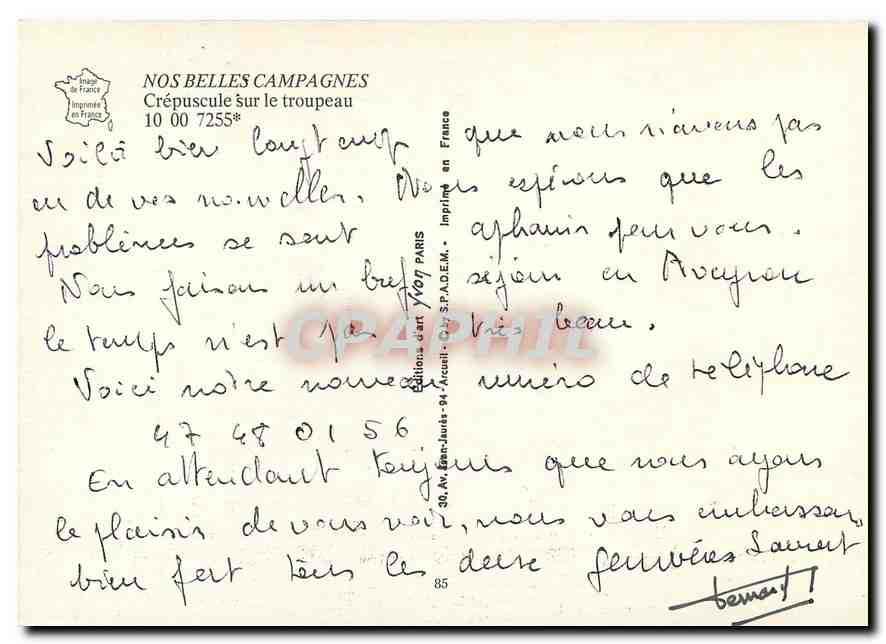 Image
de France
Imprimée
en France
NOS BELLES CAMPAGNES
Crépuscule sur le troupeau
10 00 7255*
Voilà bien longtemps que nous n'avons pas
eu de vos nouvelles. Nous espérons que les
problèmes se sont aplanis pour vous.
Nous faisons un bref séjour en Aveyron
le temps n'est pas très beau.
Voici notre nouveau numéro de téléphone
47 48 01 56
En attendant toujours que nous ayons
le plaisir de vous voir, nous vous embrassons
bien fort tous les deux Laurent
Bernard
Editions d'art yvon PARIS
30, Av. Jean-Jaurès - 94 - Arcueil - © by S.P.A.D.E.M. - Imprimé en France
85
CPAPHIL